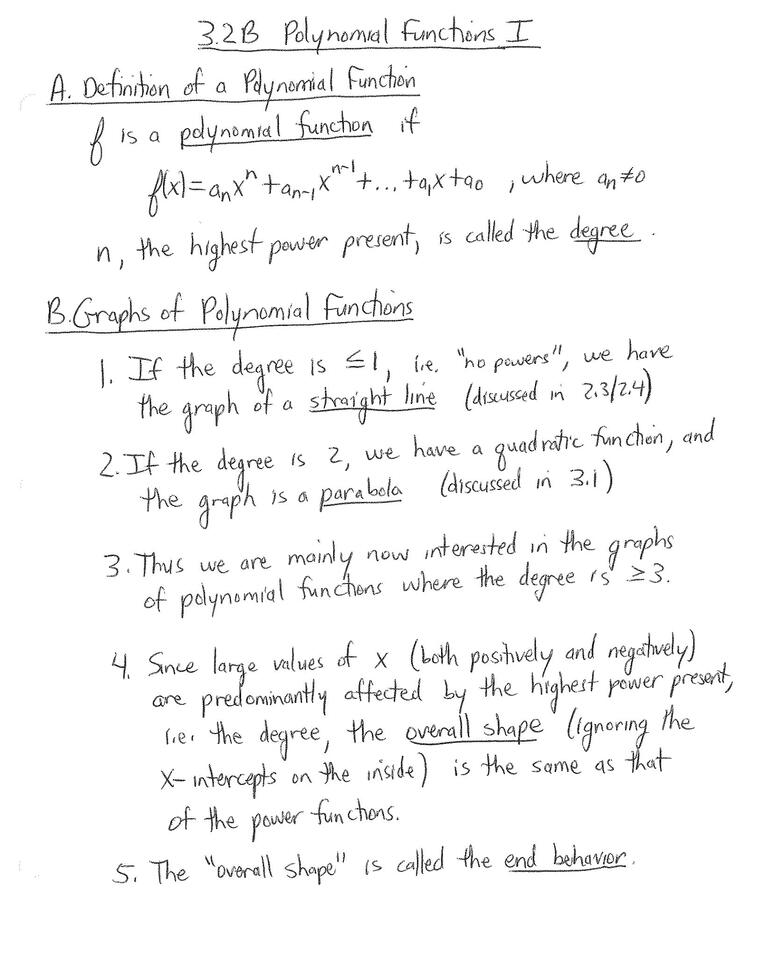 3.2B Polynomial Functions I
A. Definition of a Polynomial Function
f is a polynomial function if
f(x)=aₙxⁿ+aₙ₋₁xⁿ⁻¹+...+a₁x+a₀, where aₙ≠0
n, the highest power present, is called the degree.
B. Graphs of Polynomial Functions
1. If the degree is ≤1, i.e. "no powers", we have
the graph of a straight line (discussed in 2.3/2.4)
2. If the degree is 2, we have a quadratic function, and
the graph is a parabola (discussed in 3.1)
3. Thus we are mainly now interested in the graphs
of polynomial functions where the degree is ≥3.
4. Since large values of x (both positively and negatively)
are predominantly affected by the highest power present,
i.e. the degree, the overall shape (ignoring the
x-intercepts on the inside) is the same as that
of the power functions.
5. The "overall shape" is called the end behavior.